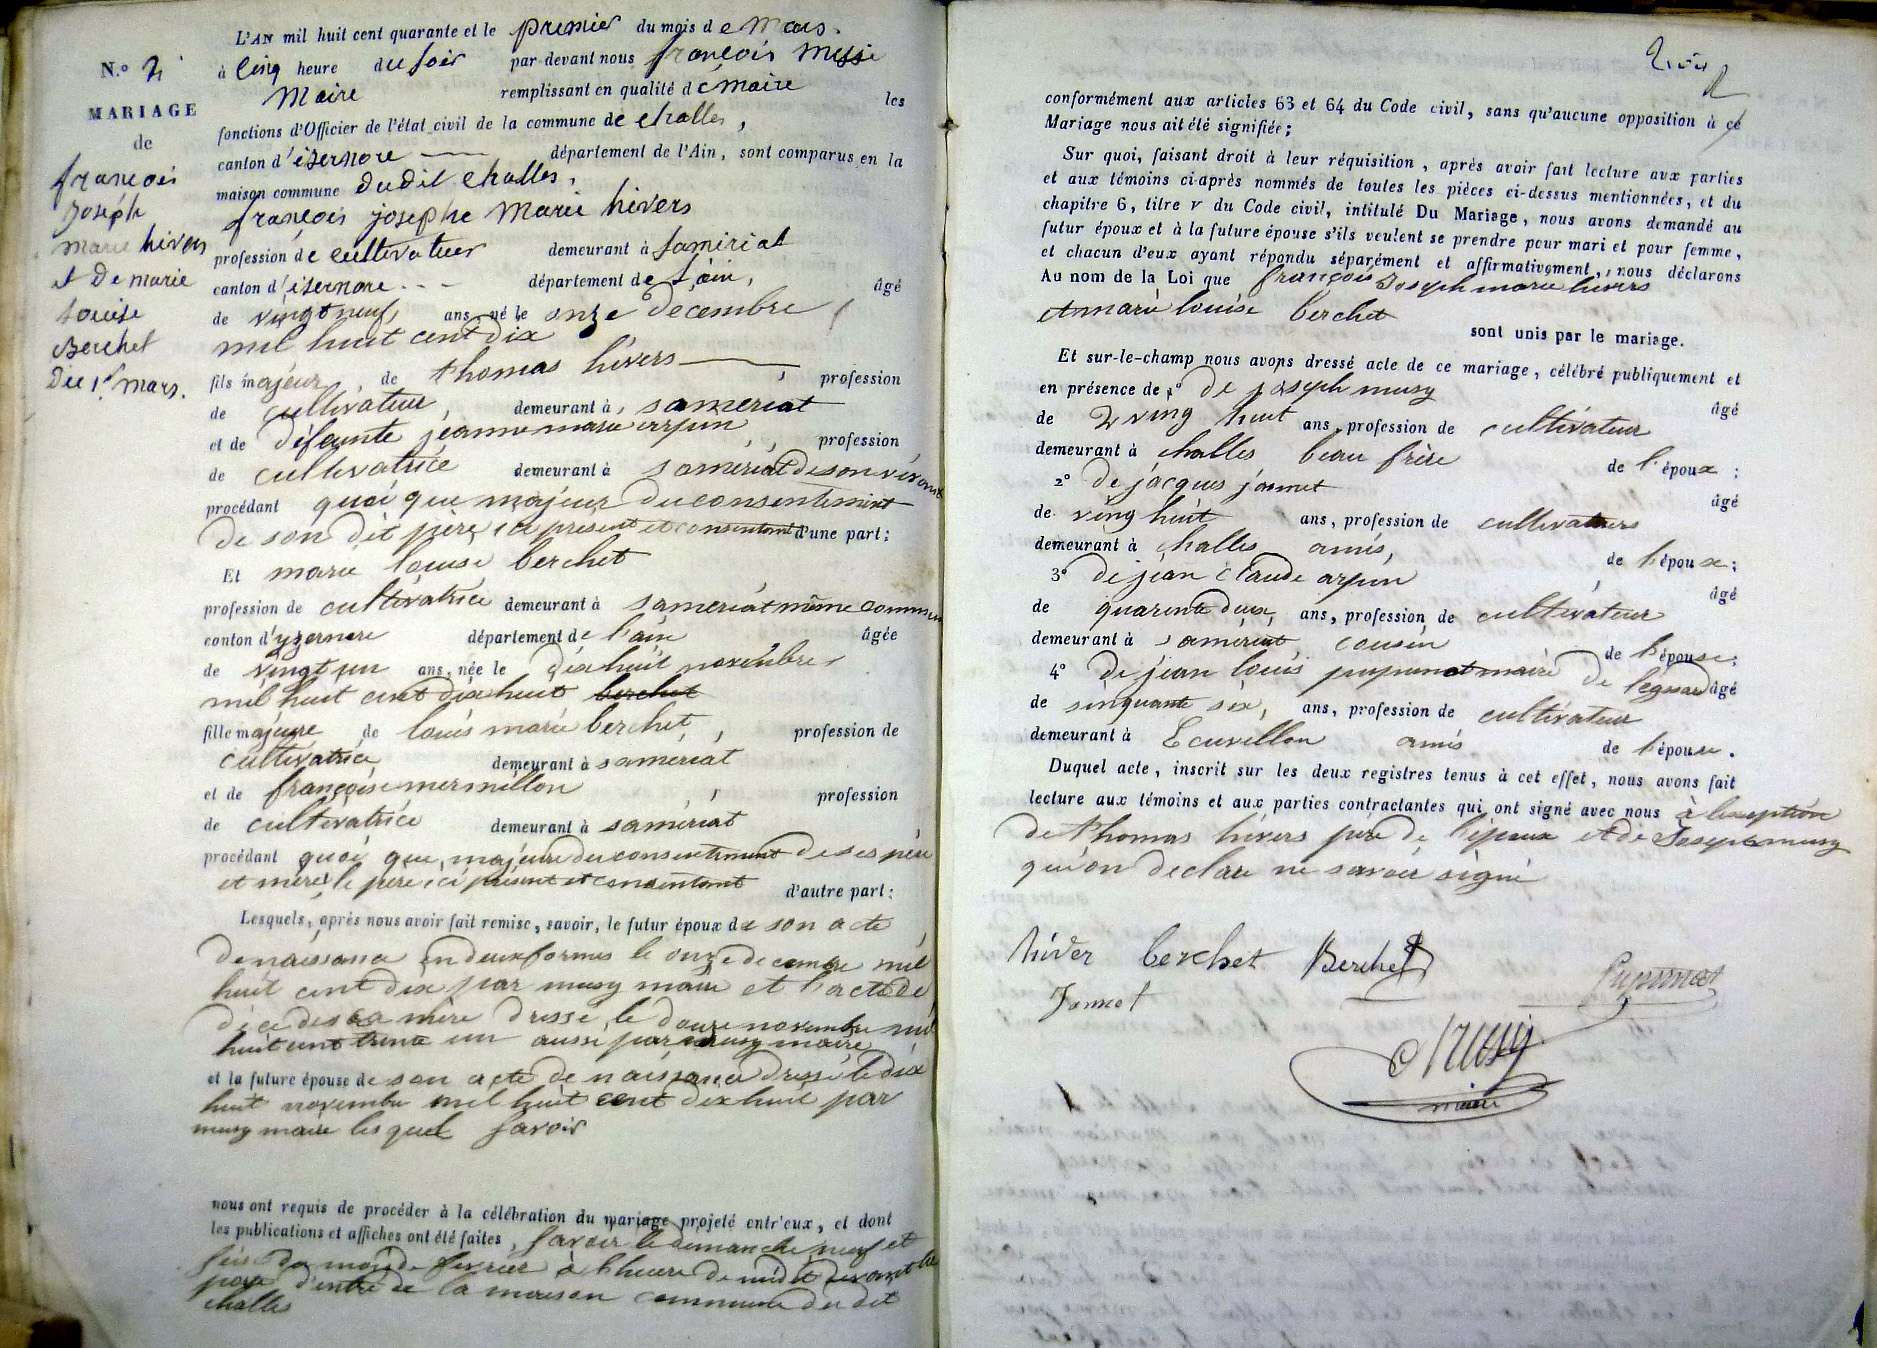 L'AN mil huit cent quarante et le premier du mois de Mars.
N.º 2 à Cinq heure du soir par-devant nous françois Musi
Maire remplissant en qualité de maire les
MARIAGE
de
fonctions d'Officier de l'état civil de la commune de challes,
canton d'izernore département de l'Ain, sont comparus en la
maison commune dudit challes,
françois
Joseph
marie hivers
et De marie
Louise
Berchet
Du 1er mars.
françois josephe Marie hivers
profession de cultivateur demeurant à samériat
canton d'izernore département de l'ain, âgé
de vingt neuf ans, né le onze decembre
mil huit cent dix
fils majeur de thomas hivers, profession
de cultivateur, demeurant à, sameriat
et de défeunte jeanne marie arpin, profession
de cultivatrice demeurant à sameriat de son vivant
procédant quoi que majeur du consentement
de son dit père ici présent et consentant d'une part:
Et marie louise berchet
profession de cultivatrice demeurant à sameriat même commun
canton d'yzernore département de l'ain âgée
de vingt un ans, née le dix huit novembre
mil huit cent dix huit berchet
fille majeure de louis marie berchet, profession de
cultivatrice demeurant à sameriat
et de françoise mermillon, profession
de cultivatrice demeurant à sameriat
procédant quoi que majeure du consentement de ses père
et mère le père ici présent et consentant d'autre part:
Lesquels, après nous avoir fait remise, savoir, le futur époux de son acte
de naissance en deux formes le onze decembre mil
huit cent dix par musy maire et l'acte de
décé de sa mère dressé le douze novembre mil
huit cent trente un aussi par musy maire
et la future épouse de son acte de naissance dressé le dix
huit novembre mil huit cent dix huit par
musy maire les quel savoir
nous ont requis de procéder à la célébration du mariage projeté entr'eux, et dont
les publications et affiches ont été faites, savoir le dimanche neuf et
du mois de fevrier à l'heure de midi devant la
porte d'entré de la maison commune du dit
challes
conformément aux articles 63 et 64 du Code civil, sans qu'aucune opposition à ce
Mariage nous ait été signifiée;
Sur quoi, faisant droit à leur réquisition, après avoir fait lecture aux parties
et aux témoins ci-après nommés de toutes les pièces ci-dessus mentionnées, et du
chapitre 6, titre V du Code civil, intitulé Du Mariage, nous avons demandé au
futur époux et à la future épouse s'ils veulent se prendre pour mari et pour femme,
et chacun d'eux ayant répondu séparément et affirmativement, nous déclarons
Au nom de la Loi que françois Joseph marie hivers
et marie louise berchet
sont unis par le mariage.
Et sur-le-champ nous avons dressé acte de ce mariage, célébré publiquement et
en présence de 1º de joseph musy âgé
de ving huit ans, profession de cultivateur
demeurant à challes beau frère de l'époux;
2º de jacques jannet âgé
de ving huit ans, profession de cultivateurs
demeurant à challes amis, de l'épouse;
3º de jean claude arpin âgé
de quarente deux, ans, profession de cultivateur
demeurant à samériat cousin de l'épouse;
4º de jean louis pupunat maire de âgé
de sinquante six, ans, profession de cultivateur
demeurant à Ecuvillon amis de l'épouse.
Duquel acte, inscrit sur les deux registres tenus à cet effet, nous avons fait
lecture aux témoins et aux parties contractantes qui ont signé avec nous à l'exeption
de thomas hivers père de l'époux et de Joseph musy
qui on declaré ne savoir signé
hiver berchet Berchet Pupunat
Jannet
Musy
maire